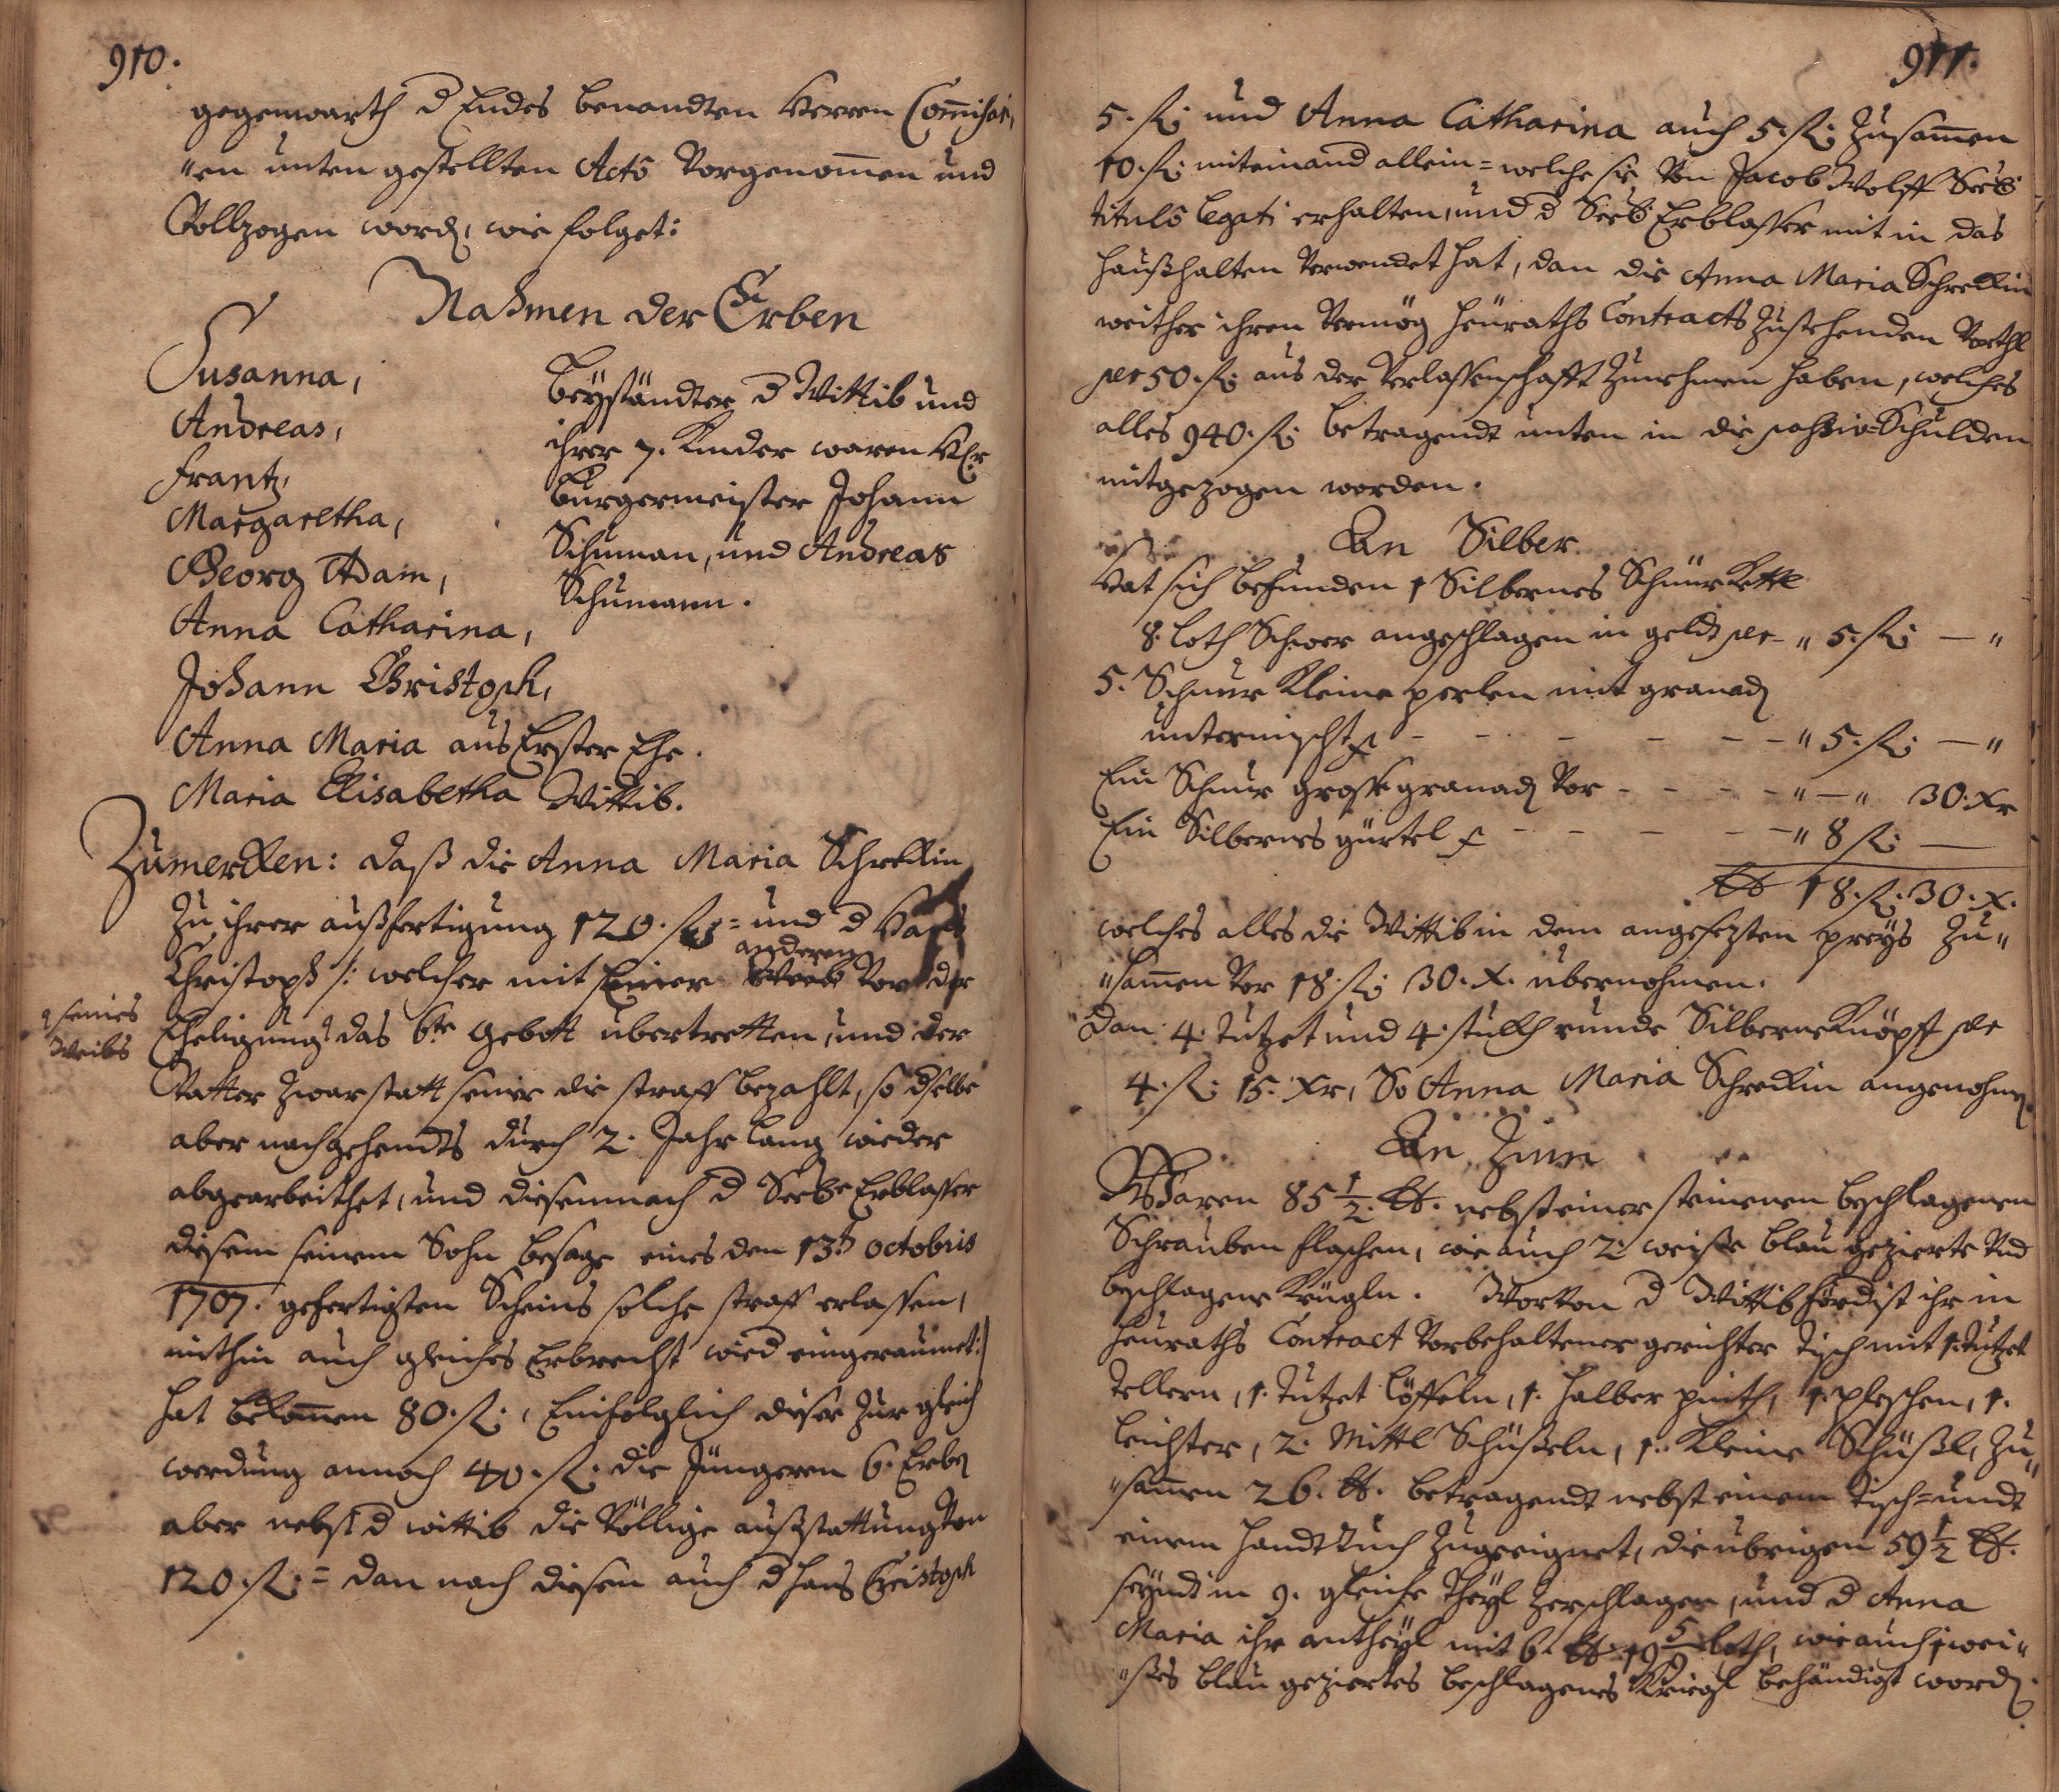 910.
gegenwarth d Endes benandten Herren Com̄issari,
"en unten gestellten Acto Vorgenom̄en und
Vollzogen word, wie folget:
Nahmen der Erben
Susanna,
Andreas,
Frantz,
Margaretha,
Georg Adam,
Anna Catharina,
Johann Christoph,
Anna Maria aus Erster Ehe.
Maria Elisabetha Wittib.
Beÿständter d Wittib und
ihrer 7. Kinder waren Hr
Burgermeister Johann
Schuman, und Andreas
Schumann.
Zumerken: daß die Anna Maria Schrekin
Zu ihrer außfertigung 120. fl = und d Hans
anderen
Christoph /: welcher mit seiner Vor der
seines
Weibs
Eheligung das 6te Gebott übertretten, und der
Vatter zwar statt seiner die straff bezahlt, so dselbe
aber nachgehendts durch 2. Jahr lang wieder
abgearbeithet, und diesemnach d Seel: Erblasser
diesem seinem Sohn besage eines den 13t octobris
1707. gefertigten Scheins solche straff erlassen,
mithin auch gleiches Erbrecht wird eingeraumet:/
hat bekom̄en 80. fl:, Einfolglich dieser zur gleich
werdung annoch 40. fl. die Jüngeren 6. Erbe
aber nebst d wittib die Völlige außstattung Von
120. fl: = dan nach diesem auch d Hans Christoph
911.
5. fl: und Anna Catharina auch 5. fl: Zusam̄en
10. fl: miteinand allein = welche sie Von Jacob Wolff Seel:
titulo legati erhalten, und d Seel: Erblasser mit in das
haußhalten Verwendet hat, dan die Anna Maria Schrekin
weither ihren Vermög heuraths Contracts Zustehenden Vorthl
per 50. fl: aus der Verlassenschafft Zunehmen haben, welches
alles 940. fl: betragendt unten in die passiv-Schulden
mitgezogen worden.
An Silber
Hat sich befunden 1 Silbernes Schnür Kettl
8. loth Schwer angeschlagen in geld per " 5. fl: — "
5. Schnur Kleine perlen mit granad
untermischt p - - - - - - " 5. fl: — "
Ein Schnur grosse granad Vor - - - - " — " 30. Xr
Ein Silbernes gürtel p - - - - - " 8 fl: —
18. fl: 30. X.
welches alles die Wittib in dem angesezten preÿs Zu"
"sam̄en Vor 18. fl: 30. X. übernohmen.
Dan 4. tutzet und 4. stukh runde Silberne Knöpf per
4. fl: 15. Xr, So Anna Maria Schrekin angenohm̄
An Zinn
Waren 85 1/2 lb. nebst einer steinenen beschlagenen
Schrauben flaschen, wie auch 2. weisse blau gezierte Und
beschlagene Krügln. Worvon d Wittib fördist ihr in
heuraths Contract Vorbehaltener gerichter Tisch mit 1. tutzet
Tellern, 1. tutzet löffeln, 1. halber pinth, 1. pleschen, 1.
leichter, 2. Mittl Schüßeln, 1. kleine Schüßl, Zu"
"sam̄en 26. lb. betragendt nebst einem tisch= undt
einem handttuch Zugeeignet, die übrigen 59 1/2 lb.
seÿndt in 9. gleiche Theÿl Zerschlagen, und d Anna
Maria ihr antheÿl mit 6. lb. 19 5/9 loth, wie auch 1 wei"
"sses blau geziertes beschlagenes Kriegl behändigt word.